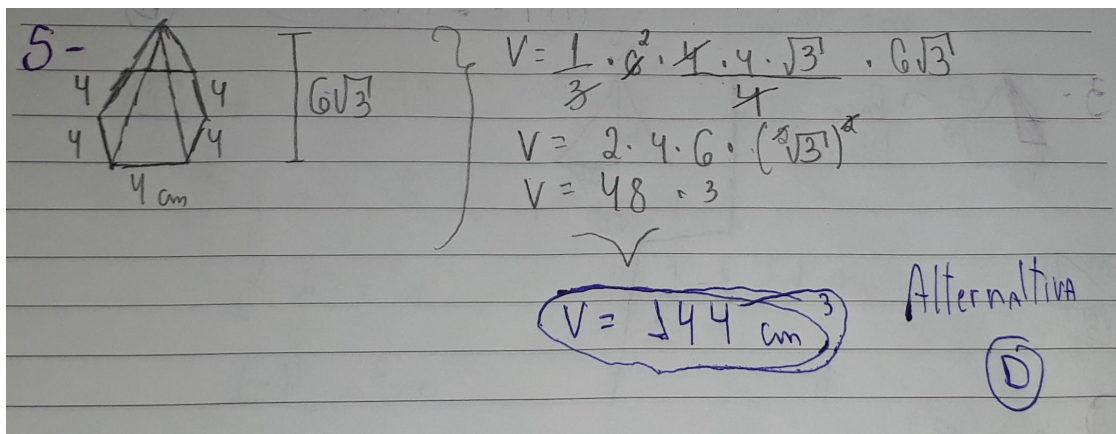 5-
4 4
4 4
4 cm
6√3
V = 1/3 · 6 · 4 · 4 · √3 / 4 · 6√3
2
V = 2 · 4 · 6 · (²√3)²
V = 48 · 3
V = 144 cm³
Alternaltiva
D